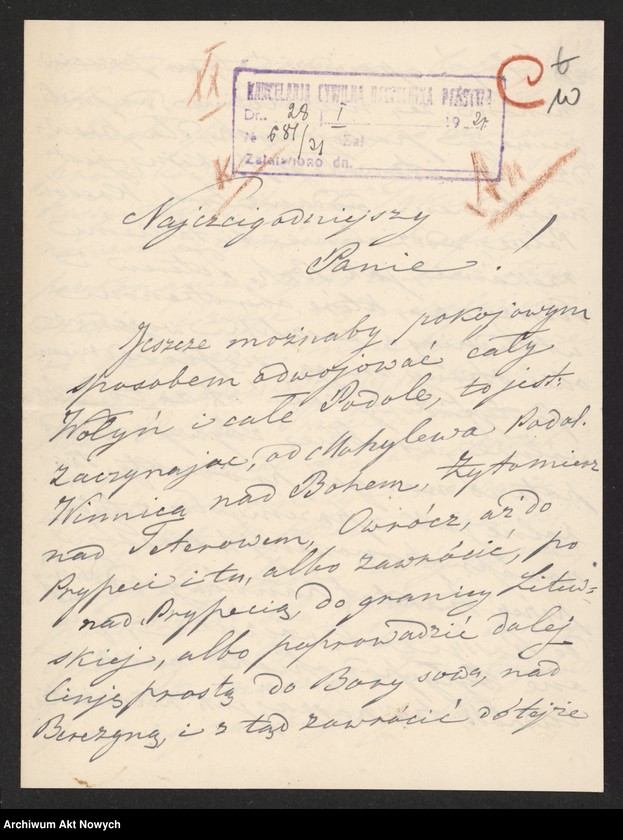 XX
C
t
w
KANCELARJA CYWILNA NACZELNIKA PAŃSTWA
Dn. 28 I 1921
№ 681/21 Zał.
Załatwiono dn.
K
Najczcigodniejszy
Panie!
Jeszcze możnaby pokojowym
sposobem odwojować cały
Wołyń i całe Podole, to jest:
zaczynając, od Mohylewa Podol.
Winnicą nad Bohem, Żytomierz
nad Teterowem, Owrócz, aż do
Prypeci i tu, albo zawrócić, po
nad Prypecią, do granicy Litew=
skiej, albo poprowadzić dalej
linję prostą do Borysowa, nad
Berezyną, i z tąd zawrócić do tejże
Archiwum Akt Nowych